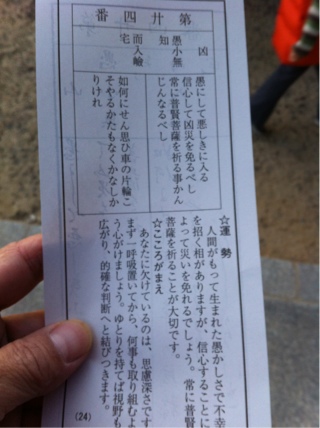 第廿四番
凶
愚小無知
而入嶮宅
愚にして悪しきに入る
信心して凶災を免るべし
常に普賢菩薩を祈る事かん
じんなるべし
如何にせん思ひ車の片輪こ
そやるかたもなくかなしか
りけれ
☆運勢
人間がもって生まれた愚かしさで不幸
を招く相がありますが、信心することに
よって災いを免れるでしょう。常に普賢
菩薩を祈ることが大切です。
☆こころがまえ
あなたに欠けているのは、思慮深さです
まず一呼吸置いてから、何事も取り組むよ
う心がけましょう。ゆとりを持てば視野も
広がり、的確な判断へと結びつきます。
(24)